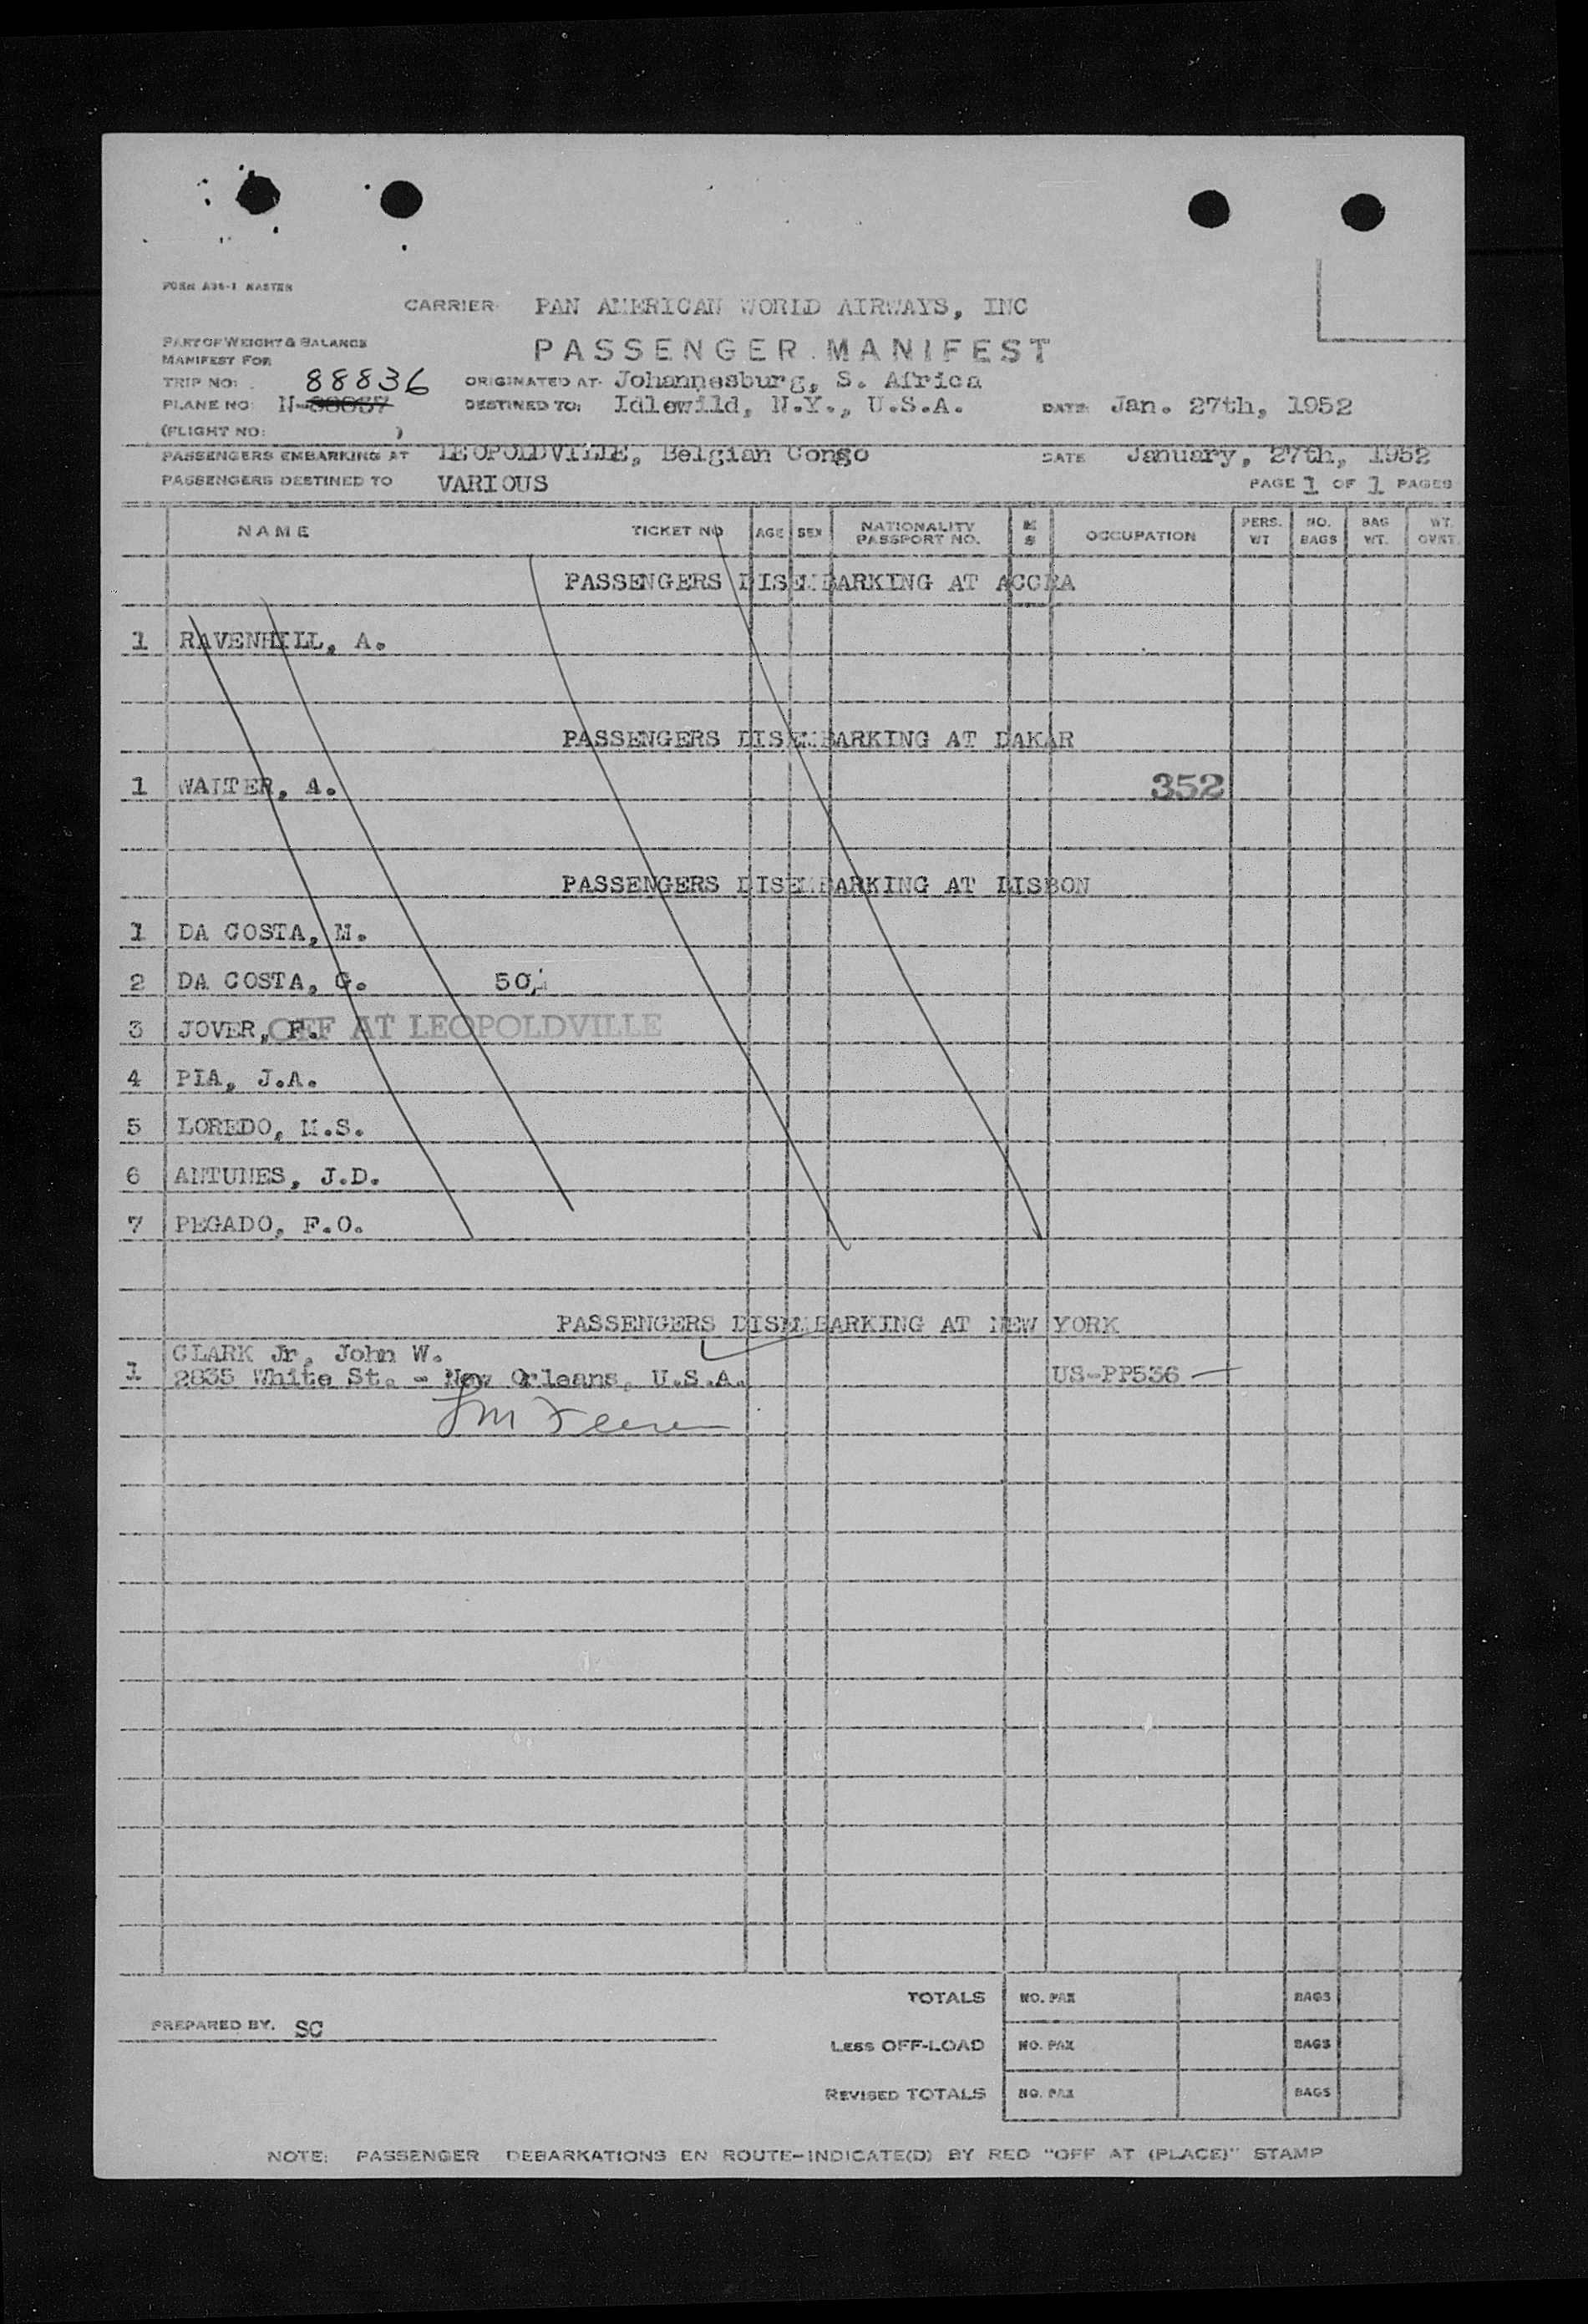 FORM A36-1 MASTER
CARRIER PAN AMERICAN WORLD AIRWAYS, INC
PART OF WEIGHT & BALANCE
MANIFEST FOR
PASSENGER MANIFEST
TRIP NO: 88836 ORIGINATED AT Johannesburg, S. Africa
PLANE NO: N-88837 DESTINED TO: Idlewild, N.Y., U.S.A. DATE Jan. 27th, 1952
(FLIGHT NO: )
PASSENGERS EMBARKING AT LEOPOLDVILLE, Belgian Congo DATE January, 27th, 1952
PASSENGERS DESTINED TO VARIOUS PAGE 1 OF 1 PAGES
NAME TICKET NO AGE SEX NATIONALITY PASSPORT NO. M S OCCUPATION PERS. WT NO. BAGS BAG WT. WT. OVNT.
PASSENGERS DISEMBARKING AT ACCRA
1 RAVENHILL, A.
PASSENGERS DISEMBARKING AT DAKAR
1 WALTER, A. 352
PASSENGERS DISEMBARKING AT LISBON
1 DA COSTA, M.
2 DA COSTA, G. 50
3 JOVER, F. OFF AT LEOPOLDVILLE
4 PIA, J.A.
5 LOREDO, M.S.
6 ANTUNES, J.D.
7 PEGADO, F.O.
PASSENGERS DISEMBARKING AT NEW YORK
CLARK Jr, John W.
1 2835 White St. - New Orleans, U.S.A. US-PP536
TOTALS NO. PAX BAGS
PREPARED BY. SC
LESS OFF-LOAD NO. PAX BAGS
REVISED TOTALS NO. PAX BAGS
NOTE: PASSENGER DEBARKATIONS EN ROUTE-INDICATE(D) BY RED "OFF AT (PLACE)" STAMP